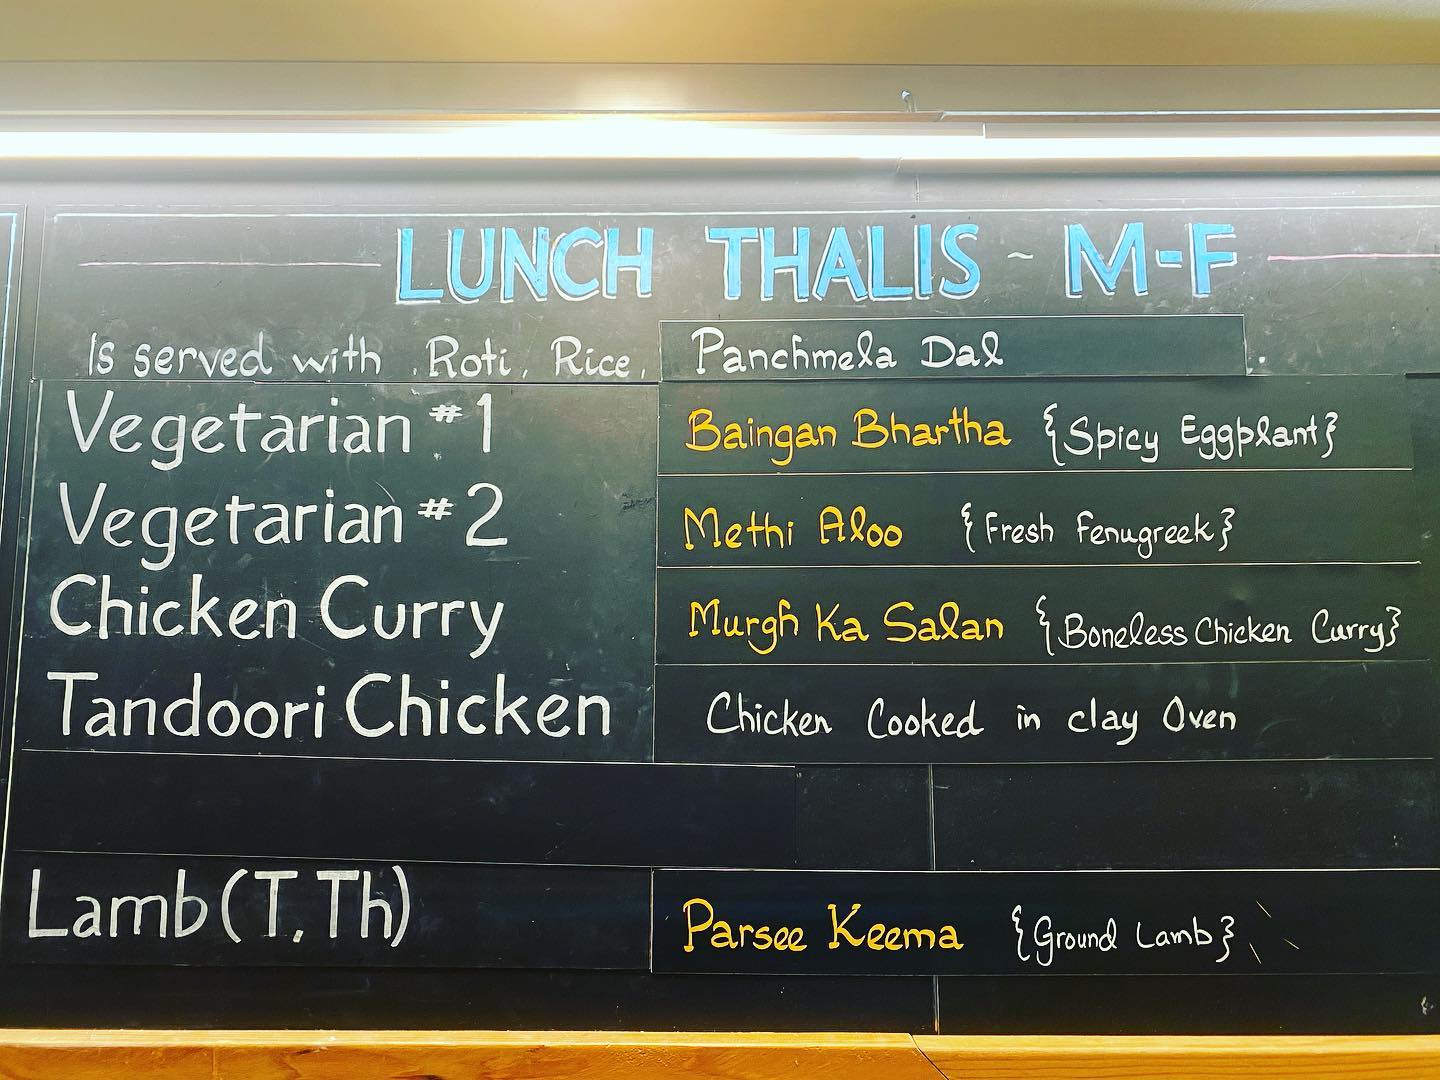 LUNCH THALIS ~ M-F
Is served with Roti, Rice, Panchmela Dal.
Vegetarian #1 Baingan Bhartha {Spicy Eggplant}
Vegetarian #2 Methi Aloo {Fresh Fenugreek}
Chicken Curry Murgh Ka Salan {Boneless Chicken Curry}
Tandoori Chicken Chicken Cooked in clay Oven
Lamb (T, Th) Parsee Keema {Ground Lamb}